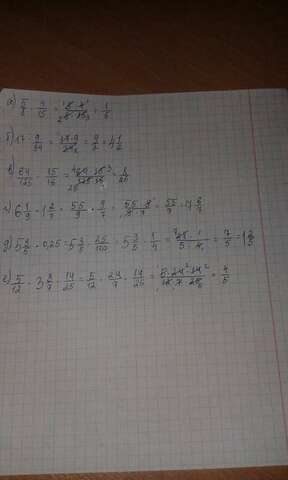 а) 5/8 · 4/15 = 5·4/8·15 = 1/6
б) 17 · 9/34 = 17·9/34 = 9/2 = 4 1/2
в) 64/125 · 15/16 = 64·15/125·16
г) 6 1/9 · 1 2/7 = 55/9 · 9/7 = 55·9/9·7 = 55/7 = 7 6/7
д) 5 3/5 · 0,25 = 5 3/5 · 25/100 = 5 3/5 · 1/4 = 7/5 = 1 2/5
е) 5/12 · 3 3/7 · 14/25 = 5/12 · 24/7 · 14/25 = 5·24·14/12·7·25 = 4/5